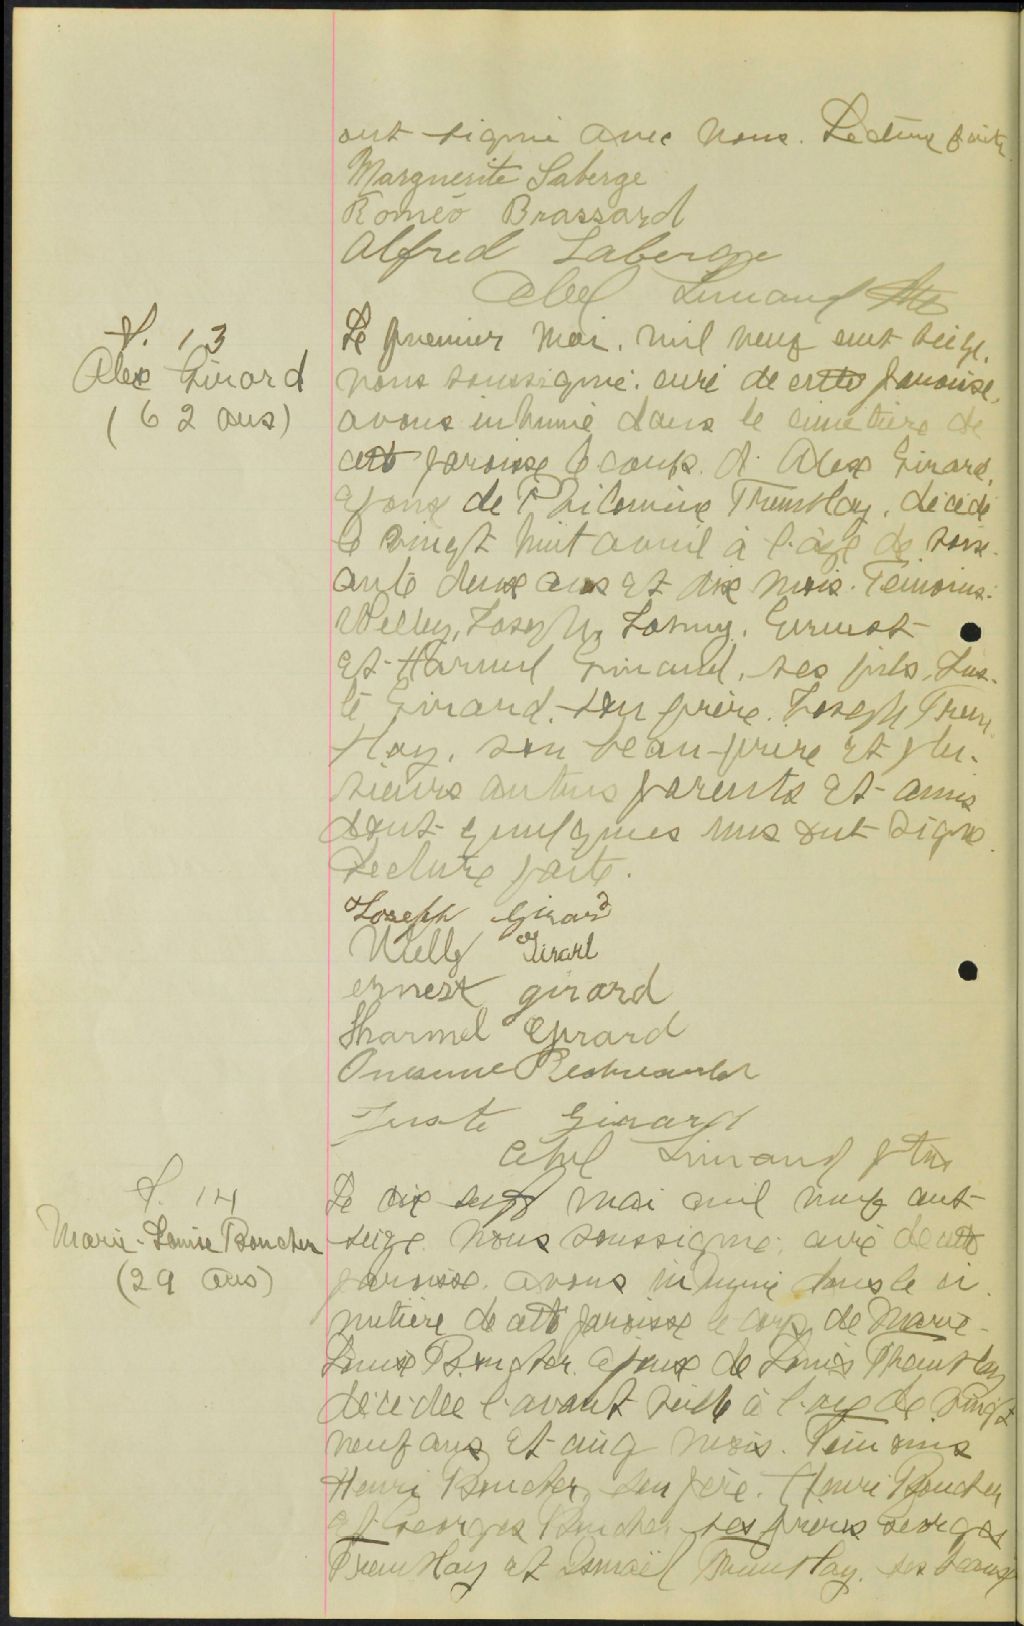 ont signé avec nous. Lecture faite.
Marguerite Laberge
Roméo Brassard
Alfred Laberge
Abel Simard Ptre
S. 13
Alex Girard
(62 ans)
Le premier mai, mil neuf cent seize,
nous soussigné, curé de cette paroisse,
avons inhumé dans le cimetière de
cette paroisse le corps d'Alex Girard,
époux de Philomène Tremblay, décédé
le vingt huit avril à l'âge de soix-
ante deux ans et dix mois. Témoins:
Welley, Joseph, Johnny, Ernest
et Harmel Girard, ses fils, Jus-
te Girard, son frère, Joseph Trem-
blay, son beau-frère et plu-
sieurs autres parents et amis
dont quelques uns ont signé.
Lecture faite.
Joseph Girard
Willy Girard
ernest girard
Sharmel Girard
Onesime
Juste Girard
Abel Simard ptre
S. 14
Marie-Louise Boucher
(29 ans)
Le dix sept mai mil neuf cent
seize, nous soussigné, curé de cette
paroisse, avons inhumé dans le ci-
metière de cette paroisse le corps de Marie-
Louise Boucher, épouse de Louis Tremblay
décédée l'avant veille à l'âge de vingt
neuf ans et cinq mois. Témoins
Henri Boucher, son père, Henri Boucher
et Georges Boucher, ses frères, Georges
Tremblay et Ismaël Tremblay, ses beaux